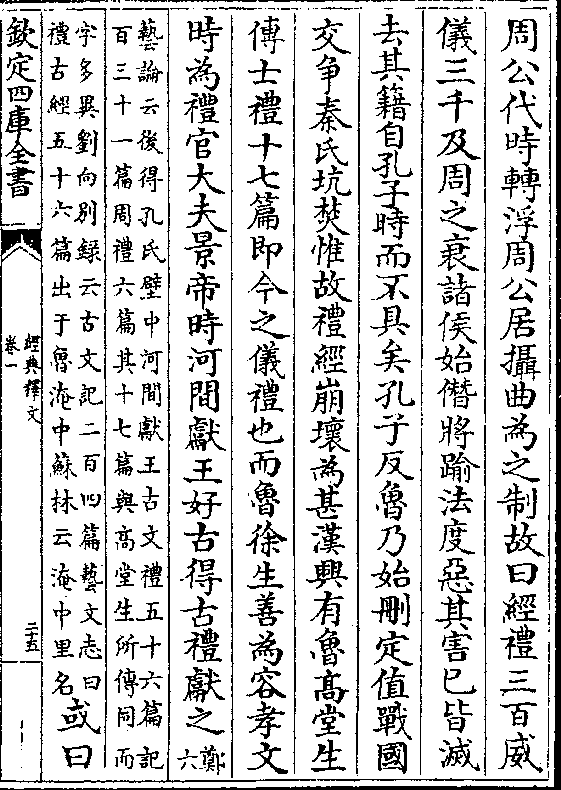 周公代時轉浮周公居攝曲為之制故曰經禮三百威
儀三千及周之衰諸侯始僭將踰法度惡其害已皆滅
去其籍自孔子時而不具矣孔子反魯乃始刪定值戰國
交争秦氏坑焚惟故禮經崩壞為甚漢興有魯髙堂生
傳士禮十七篇即今之儀禮也而魯徐生善為容孝文
時為禮官大夫景帝時河間獻王好古得古禮獻之鄭六
藝論云後得孔氏壁中河間獻王古文禮五十六篇記
百三十一篇周禮六篇其十七篇與髙堂生所傳同而
字多異劉向别録云古文記二百四篇藝文志曰
禮古經五十六篇出于魯淹中蘇林云淹中里名
或曰
欽定四庫全書
經典釋文
卷一
二十五